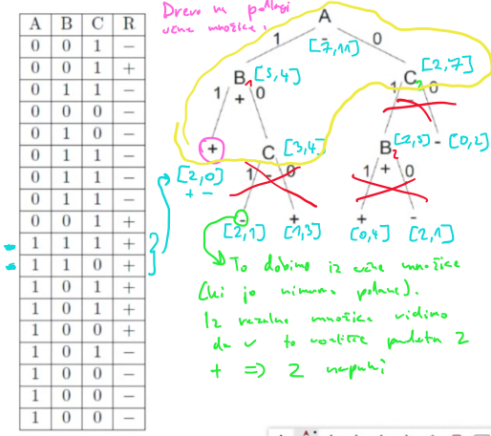 A B C R
0 0 1 −
0 0 1 +
0 1 1 −
0 0 0 −
0 1 0 −
0 1 1 −
0 1 1 −
0 1 1 −
0 0 1 +
1 1 1 +
1 1 0 +
1 0 1 +
1 0 1 +
1 0 0 +
1 0 1 −
1 0 0 −
1 0 0 −
1 0 0 −
Drevo na podlagi
učne množice.
A
1 - 0
[7,11]
B1 [5,4] C2 [2,7]
1 + 0 1 - 0
+ C [3,4] B2 [2,5] - [0,2]
[2,0] 1 - 0 1 + 0
+ −
- + + -
[2,1] [1,3] [0,4] [2,1]
To dobimo iz učne množice
(ki jo nimamo podane).
Iz rezalne množice vidimo
da v to vozlišče padeta 2
+ => 2 napaki